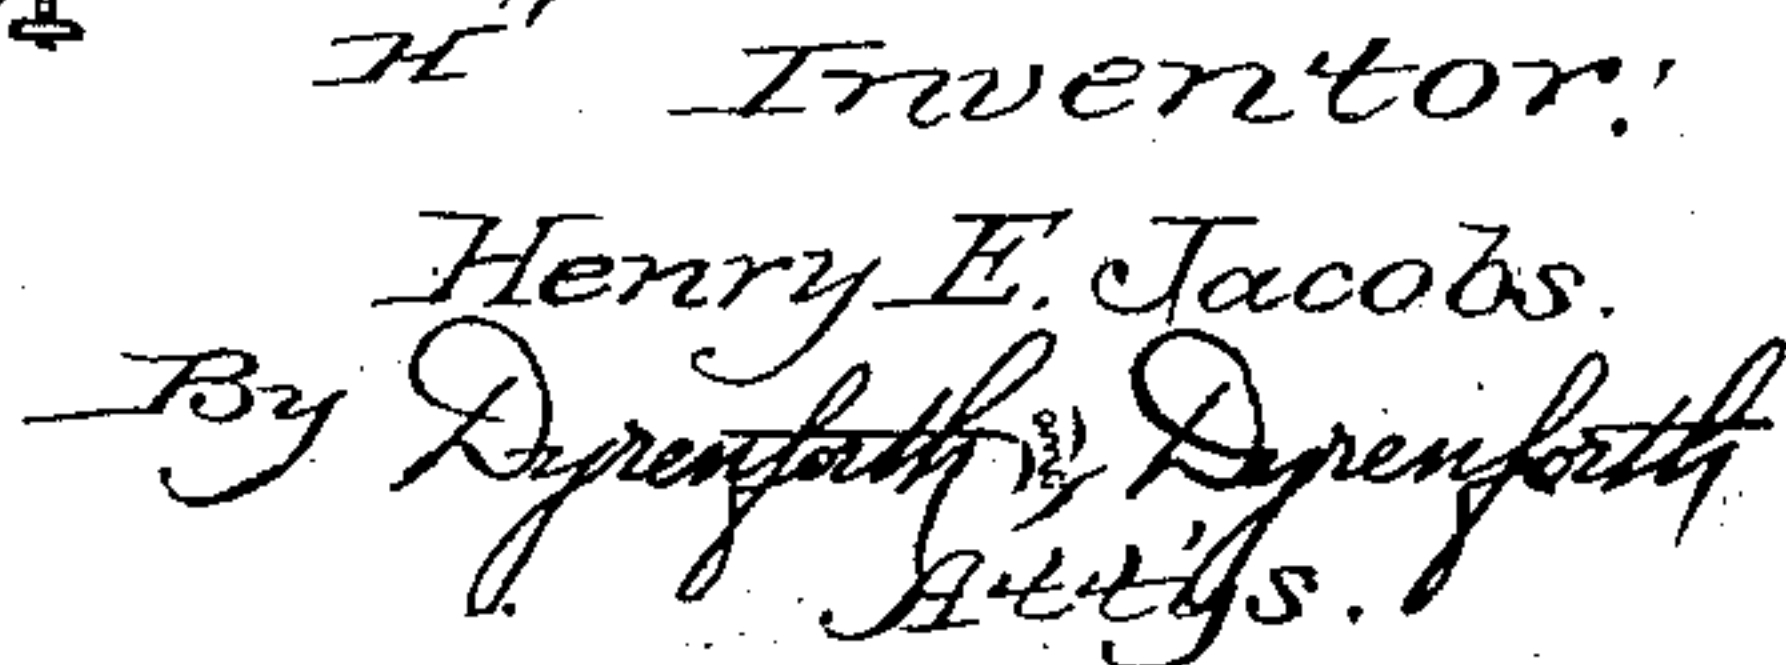 H Inventor:
Henry E. Jacobs.
By Dyrenforth & Dyrenforth
Att'ys.